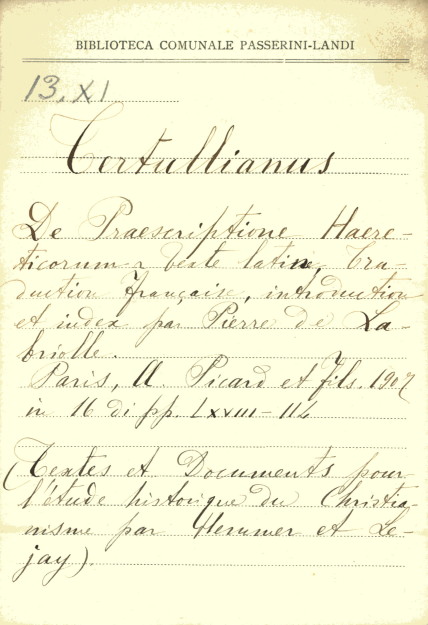 BIBLIOTECA COMUNALE PASSERINI-LANDI
13. XI
Tertullianus
De Praescriptione Haere-
ticorum texte latin, tra-
duction française, introduction
et index par Pierre de La-
briolle.
Paris, A. Picard et fils. 1907
in 16 di pp. LXVIII-114
(Textes et Documents pour
l'étude historique du Christia-
nisme par Hemmer et Le-
jay).